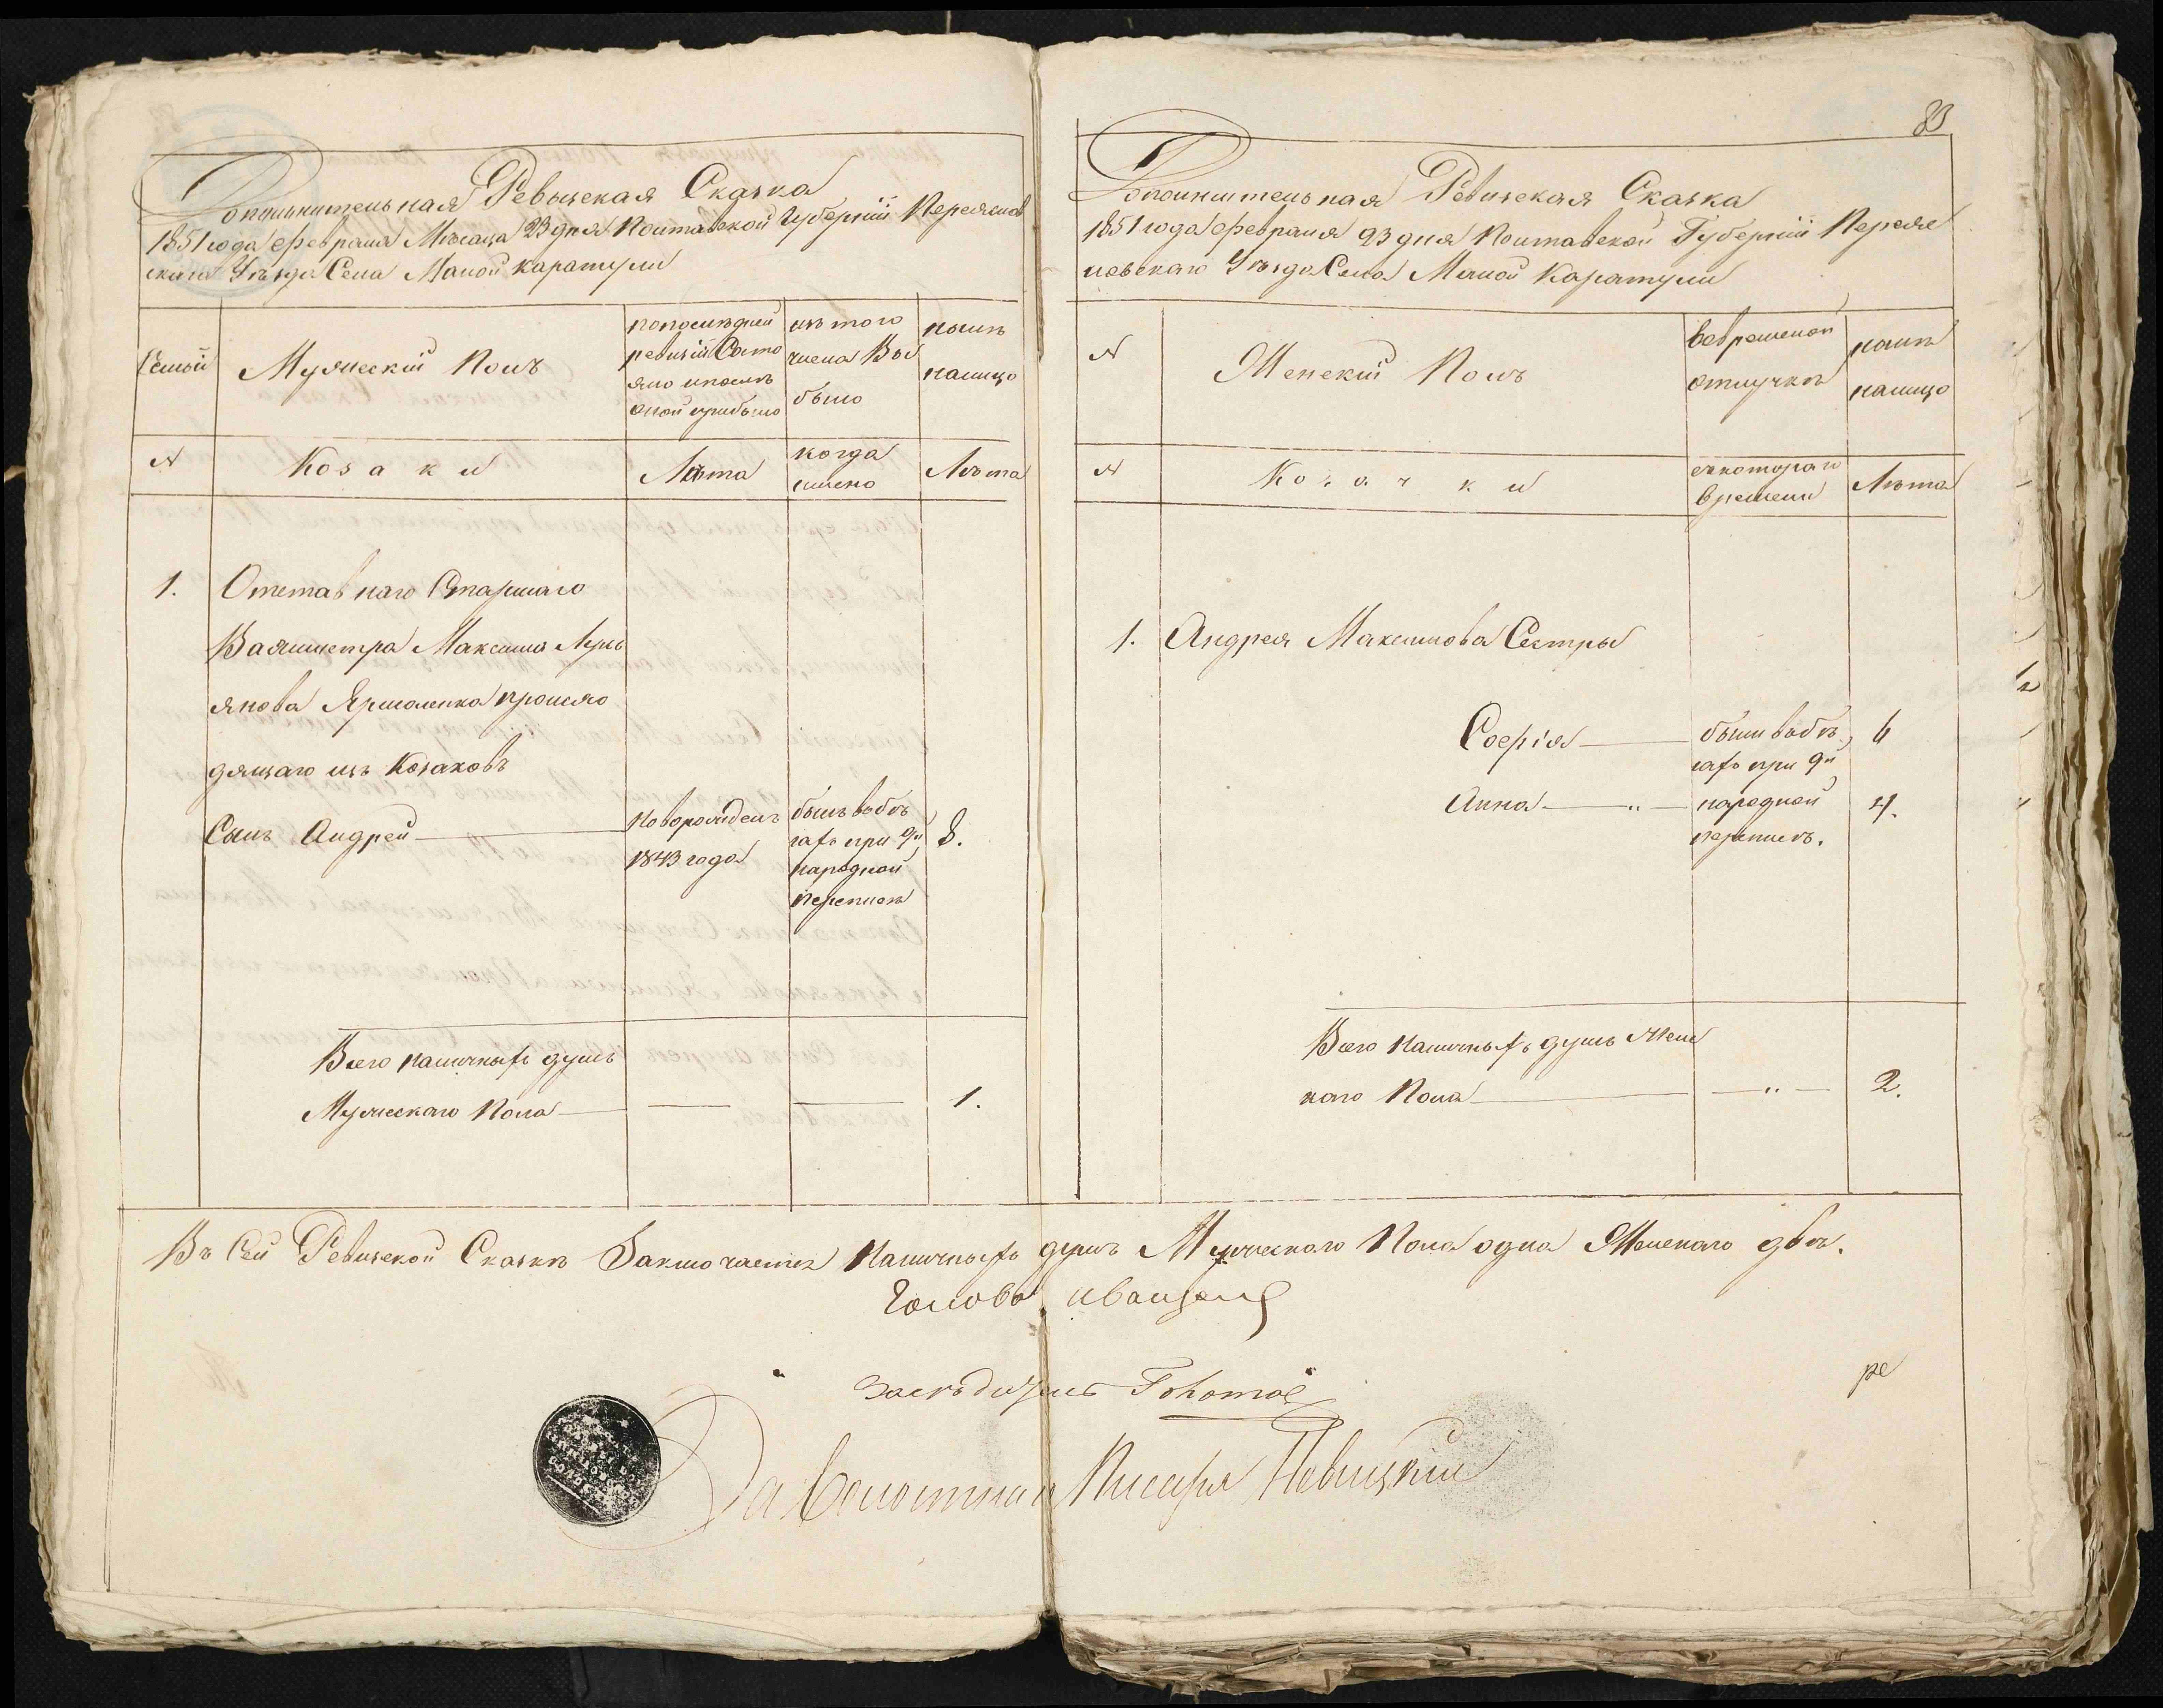 Дополнительная Ревизская Сказка
1851 года февраля Мѣсяца 23 дня Полтавской Губерніи Переяслов
скаго Уѣзда Села Малой Каратули
Семьи
Мужескій Полъ
попослѣдней
ревизіи Состо
яло ипослѣ
оной прибыло
изъ того
числа Вы
было
нынѣ
налицо
№
Козаки
Лѣта
когда
имено
Лѣта
1. Отставнаго Старшаго
Вахмистра Максима Лукь
янова Ярмоленка происхо
дящаго изъ Козаковъ
Сынъ Андрей
новорожденъ
1843 года
былъ вобѣ
гахъ при 9й
народной
переписи
8.
Всего наличныхъ душъ
Мужескаго Пола
1.
83
Дополнительная Ревизская Сказка
1851 года февраля 23 дня Полтавской Губерніи Переяс
ловскаго Уѣзда Села Малой Каратули
№
Женскій Полъ
вовременой
отлучкѣ
нынѣ
налицо
№
Козачки
скотораго
времени
Лѣта
1. Андрея Максимова Сестры
Софія
были вобѣ
гахъ при 9й
6
Анна
народной
переписѣ.
4.
Всего Наличныхъ душъ Женс
каго Пола
2.
Въ Сей Ревизской Сказкѣ Заключается Наличныхъ душъ Мужескаго Пола одна Женскаго двѣ.
Голова
За Волостнаго Писаря Левицкій